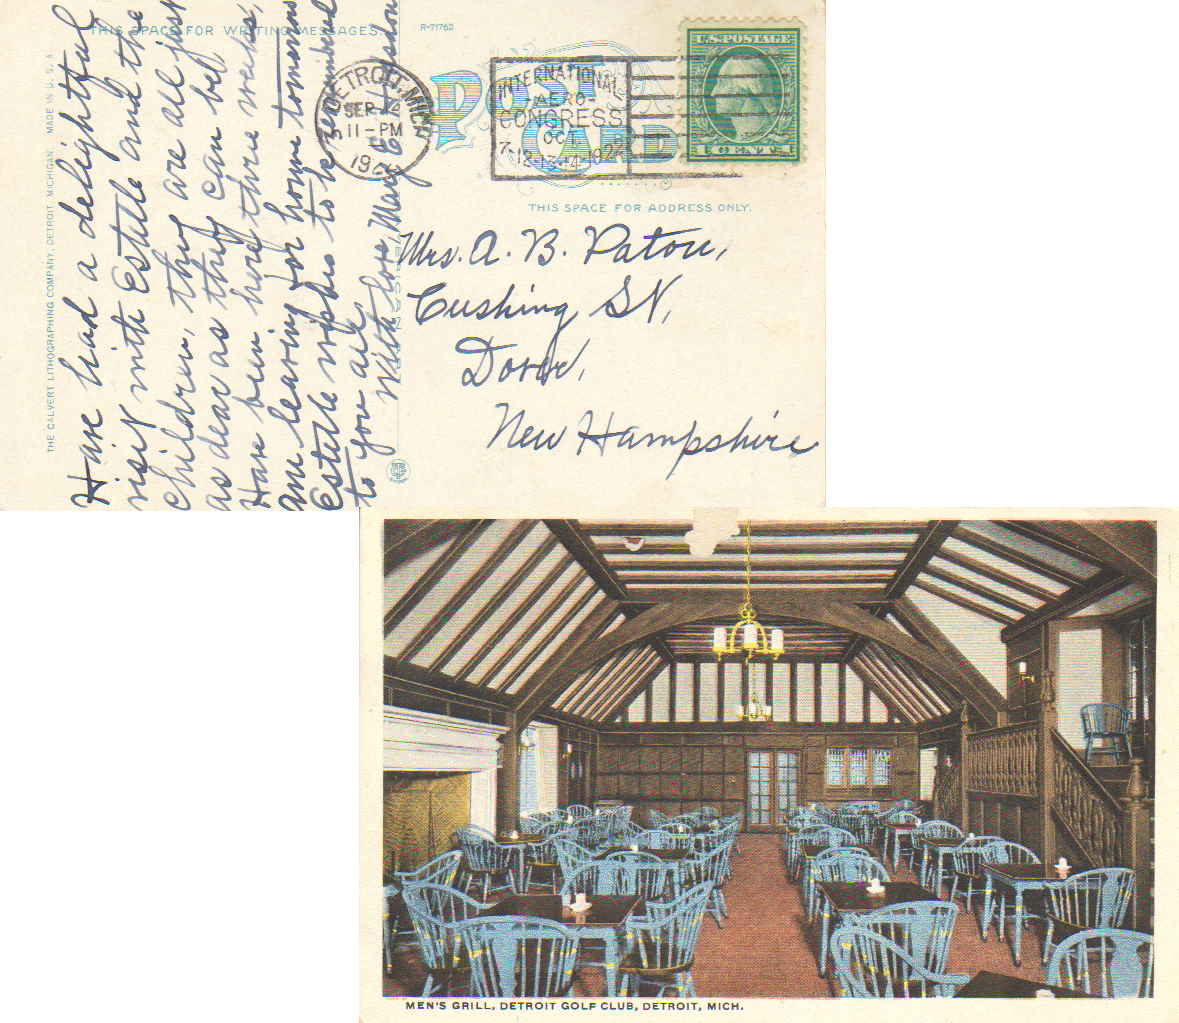 THIS SPACE FOR WRITING MESSAGES.
R-71762
POST CARD
U.S. POSTAGE
DETROIT, MICH.
SEP 14
11-PM
1922
INTERNATIONAL
-AERO-
CONGRESS
OCT.
7-12-13-14-1922
THIS SPACE FOR ADDRESS ONLY.
THE CALVERT LITHOGRAPHING COMPANY, DETROIT, MICHIGAN. MADE IN U.S.A.
Have had a delightful
visit with Estelle and the
children, they are all just
as dear as they can be!
Have been here three weeks,
am leaving for home tomorrow
Estelle wishes to be remembered
to you all
With love, Mary
Mrs. A. B. Paton,
Cushing St,
Dover,
New Hampshire
MEN'S GRILL, DETROIT GOLF CLUB, DETROIT, MICH.